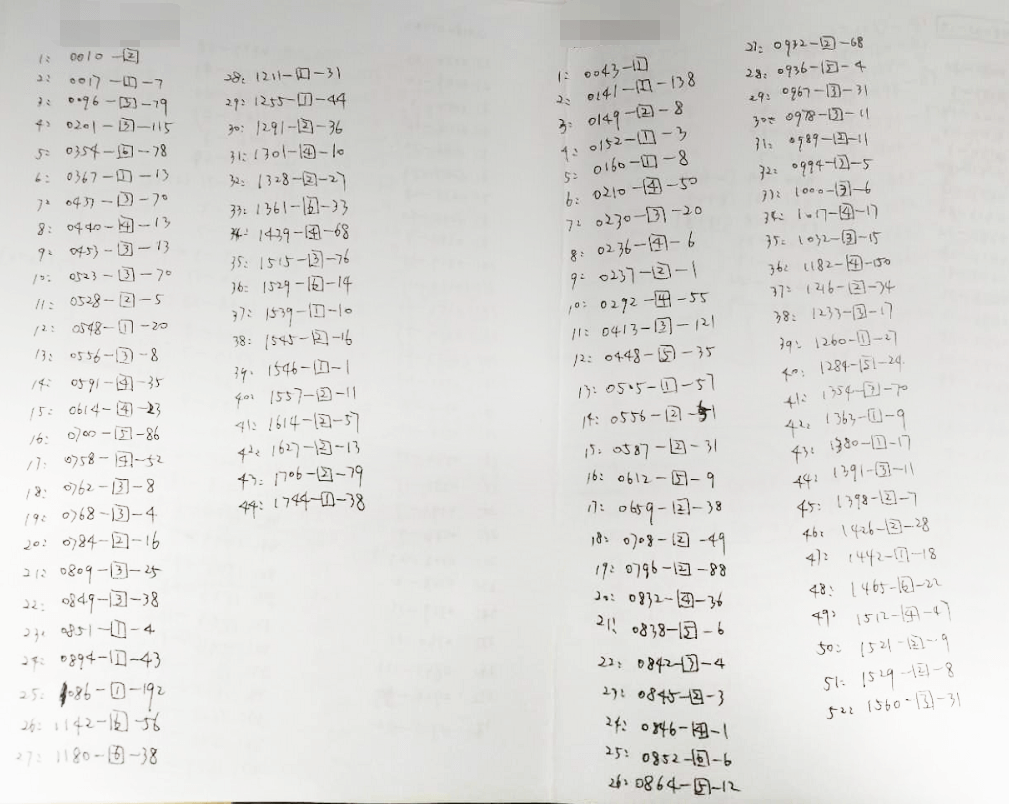 1: 0010-[2]
2: 0017-[1]-7
3: 0096-[5]-79
4: 0201-[3]-115
5: 0354-[6]-78
6: 0367-[1]-13
7: 0437-[3]-70
8: 0440-[4]-13
9: 0453-[3]-13
10: 0523-[3]-70
11: 0528-[2]-5
12: 0548-[1]-20
13: 0556-[3]-8
14: 0591-[4]-35
15: 0614-[4]-23
16: 0700-[5]-86
17: 0758-[4]-52
18: 0762-[3]-8
19: 0768-[3]-4
20: 0784-[2]-16
21: 0809-[3]-25
22: 0849-[3]-38
23: 0851-[1]-4
24: 0894-[1]-43
25: 1086-[1]-192
26: 1142-[6]-56
27: 1180-[6]-38
28: 1211-[1]-31
29: 1255-[1]-44
30: 1291-[2]-36
31: 1301-[4]-10
32: 1328-[2]-27
33: 1361-[6]-33
34: 1439-[4]-68
35: 1515-[3]-76
36: 1529-[6]-14
37: 1539-[1]-10
38: 1545-[2]-16
39: 1546-[1]-1
40: 1557-[2]-11
41: 1614-[2]-57
42: 1627-[2]-13
43: 1706-[2]-79
44: 1744-[1]-38
1: 0043-[1]
2: 0141-[1]-138
3: 0149-[2]-8
4: 0152-[1]-3
5: 0160-[1]-8
6: 0210-[4]-50
7: 0230-[3]-20
8: 0236-[4]-6
9: 0237-[2]-1
10: 0292-[4]-55
11: 0413-[3]-121
12: 0448-[5]-35
13: 0505-[1]-57
14: 0556-[2]-51
15: 0587-[2]-31
16: 0612-[5]-9
17: 0659-[2]-38
18: 0708-[2]-49
19: 0796-[2]-88
20: 0832-[4]-36
21: 0838-[5]-6
22: 0842-[3]-4
23: 0845-[2]-3
24: 0846-[4]-1
25: 0852-[6]-6
26: 0864-[5]-12
27: 0932-[2]-68
28: 0936-[5]-4
29: 0967-[3]-31
30: 0978-[3]-11
31: 0989-[2]-11
32: 0994-[2]-5
33: 1000-[3]-6
34: 1017-[4]-17
35: 1032-[3]-15
36: 1182-[4]-150
37: 1216-[2]-34
38: 1233-[3]-17
39: 1260-[1]-27
40: 1284-[5]-24
41: 1354-[3]-70
42: 1363-[1]-9
43: 1380-[1]-17
44: 1391-[3]-11
45: 1398-[2]-7
46: 1426-[2]-28
47: 1442-[1]-18
48: 1465-[6]-22
49: 1512-[4]-47
50: 1521-[2]-9
51: 1529-[2]-8
52: 1560-[3]-31